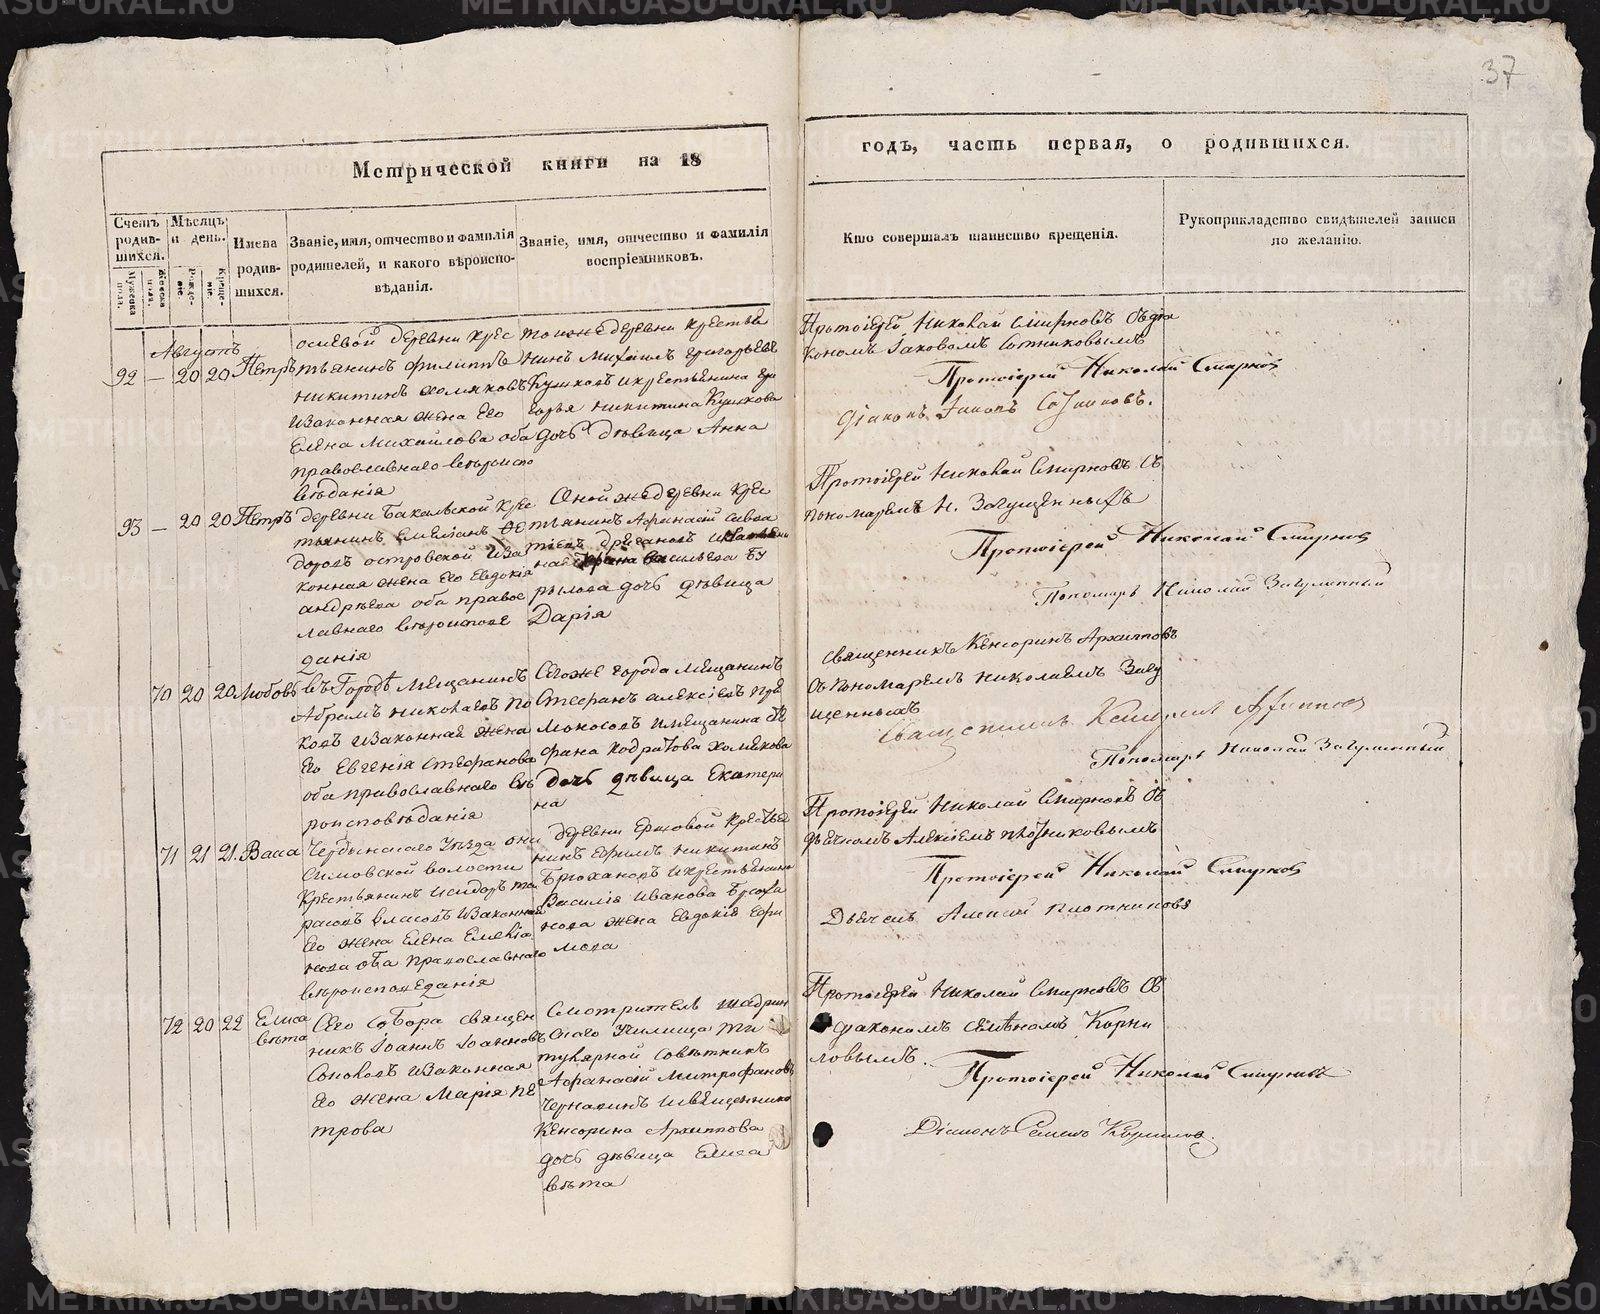 37
Метрической книги на 18
годъ, часть первая, о родившихся.
Счетъ родив-шихся.
Мужеска пола.
Женска пола.
Мѣсяцъ и день.
Рожде-нія.
Креще-нія.
Имена родив-шихся.
Званіе, имя, отчество и фамилія
родителей, и какого вѣроиспо-
вѣданія.
Званіе, имя, отчество и фамилія
воспріемниковъ.
Кто совершалъ таинство крещенія.
Рукоприкладство свидѣтелей записи
по желанію.
Августъ
92 — 20 20 Петръ
осеевой деревни крес
тьянинъ Филиппъ
Никитинъ Холяковъ
и законная жена его
Елена Михайлова оба
православнаго вѣроиспо
вѣданія
тоиже деревни крестья
нинъ Михаилъ Григорьевъ
Кушковъ и крестьянина Гри
горья Никитина Кушкова
дочь дѣвица Анна
Протоіерей Николай Смирновъ съ діа
кономъ Іаковомъ Сотниковымъ
Протоіерей Николай Смирновъ
Діаконъ Іаковъ Сотниковъ.
93 — 20 20 Петръ
деревни Бакальской крес
тьянинъ Емеліанъ Ѳе
доровъ Островской и за
конная жена его Евдокія
Андрѣева оба правос
лавнаго вѣроиспове
данія
Оной же деревни крес
тьянинъ Афанасій Савва
тіевъ
Васильева Бу
рылова дочь дѣвица
Дарія
Протоіерей Николай Смирновъ съ
пономаремъ Н. Загущенныхъ
Протоіерей Николай Смирновъ
Пономарь Николай Загущенный
70 20 20 Любовь
въ Городѣ Мѣщанинъ
Абрамъ Николаевъ По
ковъ и законная жена
его Евгенія Стефанова
оба православнаго вѣ
роисповѣданія
Сегоже города Мѣщанинъ
Стефанъ Алексіевъ При
Моносовъ и мѣщанина Сте
фана Кодратова Холякова
дочь дѣвица Екатери
на
священникъ Кенсоринъ Архипповъ
съ Пономаремъ Николаемъ Загу
щенныхъ
Священникъ Кенсоринъ Архипповъ
Пономарь Николай Загущенный
71 21 21 Васса
Чердынскаго Уѣзда они
симовской волости
Крестьянинъ Исидоръ та
расовъ Власовъ и законная
его жена Елена Емелья
нова оба Православнаго
вѣроисповеданія
деревни Ершовой Крестья
нинъ Ефимъ Никитинъ
Брюхановъ и крестьянина
Василія Иванова Брюха
нова жена Евдокія Ефи
мова
Протоіерей Николай Смирновъ съ
дьячкомъ Алексіемъ Плотниковымъ
Протоіерей Николай Смирновъ
Дьячекъ Алексій Плотниковъ
72 20 22 Елиса
вѣта
Сего Собора Священ
никъ Іоаннъ Іоанновъ
Соноковъ и законная
его жена Марія Пе
трова
Смотритель Шадрин
скаго Училища Ти
тулярной Совѣтникъ
Афанасій Митрофановъ
Чернавинъ и Священника
Кенсорина Архиппова
дочь дѣвица Елиса
вѣта
Протоіерей Николай Смирновъ съ
діакономъ Семеномъ Корни
ловымъ.
Протоіерей Николай Смирновъ
Діаконъ Семенъ Корниловъ.
METRIKI.GASO-URAL.RU